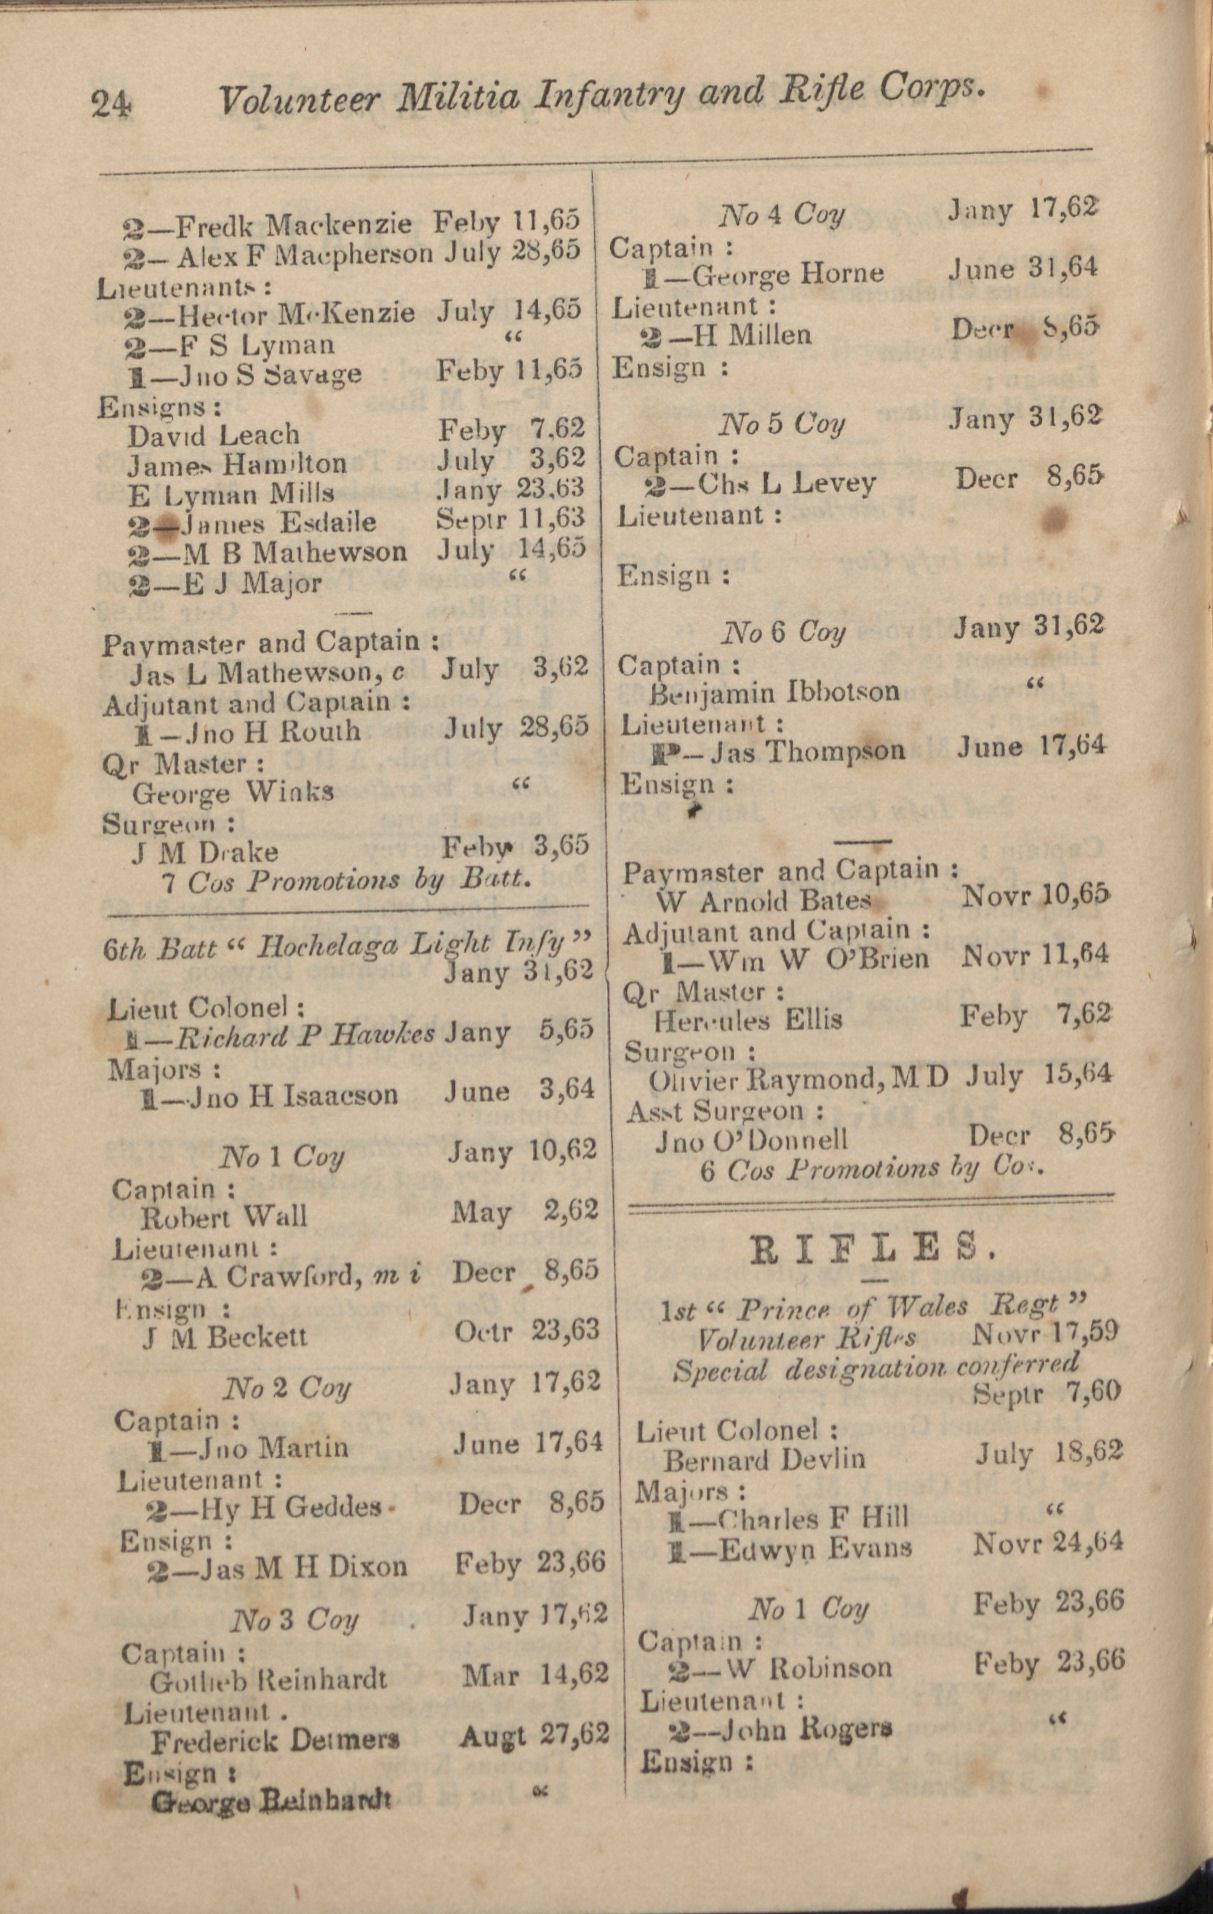 24 Volunteer Militia Infantry and Rifle Corps.
2—Fredk Mackenzie Feby 11,65
2—Alex F Macpherson July 28,65
Lieutenants:
2—Hector McKenzie July 14,65
2—F S Lyman “
1—Jno S Savage Feby 11,65
Ensigns:
David Leach Feby 7,62
James Hamilton July 3,62
E Lyman Mills Jany 23,63
2—James Esdaile Septr 11,63
2—M B Mathewson July 14,65
2—E J Major “
Paymaster and Captain:
Jas L Mathewson, c July 3,62
Adjutant and Captain:
1—Jno H Routh July 28,65
Qr Master:
George Winks “
Surgeon:
J M Drake Feby 3,65
7 Cos Promotions by Batt.
6th Batt “ Hochelaga Light Infy ”
Jany 31,62
Lieut Colonel:
1—Richard P Hawkes Jany 5,65
Majors:
1—Jno H Isaacson June 3,64
No 1 Coy Jany 10,62
Captain:
Robert Wall May 2,62
Lieutenant:
2—A Crawford, m i Decr 8,65
Ensign:
J M Beckett Octr 23,63
No 2 Coy Jany 17,62
Captain:
1—Jno Martin June 17,64
Lieutenant:
2—Hy H Geddes Decr 8,65
Ensign:
2—Jas M H Dixon Feby 23,66
No 3 Coy Jany 17,62
Captain:
Gotlieb Reinhardt Mar 14,62
Lieutenant.
Frederick Detmers Augt 27,62
Ensign:
George Reinhardt “
No 4 Coy Jany 17,62
Captain:
1—George Horne June 31,64
Lieutenant:
2—H Millen Decr 8,65
Ensign:
No 5 Coy Jany 31,62
Captain:
2—Chs L Levey Decr 8,65
Lieutenant:
Ensign:
No 6 Coy Jany 31,62
Captain:
Benjamin Ibbotson “
Lieutenant:
P—Jas Thompson June 17,64
Ensign:
Paymaster and Captain:
W Arnold Bates Novr 10,65
Adjutant and Captain:
1—Wm W O’Brien Novr 11,64
Qr Master:
Hercules Ellis Feby 7,62
Surgeon:
Olivier Raymond, M D July 15,64
Asst Surgeon:
Jno O’Donnell Decr 8,65
6 Cos Promotions by Cos.
RIFLES.
1st “ Prince of Wales Regt ”
Volunteer Rifles Novr 17,59
Special designation conferred
Septr 7,60
Lieut Colonel:
Bernard Devlin July 18,62
Majors:
1—Charles F Hill “
1—Edwyn Evans Novr 24,64
No 1 Coy Feby 23,66
Captain:
2—W Robinson Feby 23,66
Lieutenant:
2—John Rogers “
Ensign: